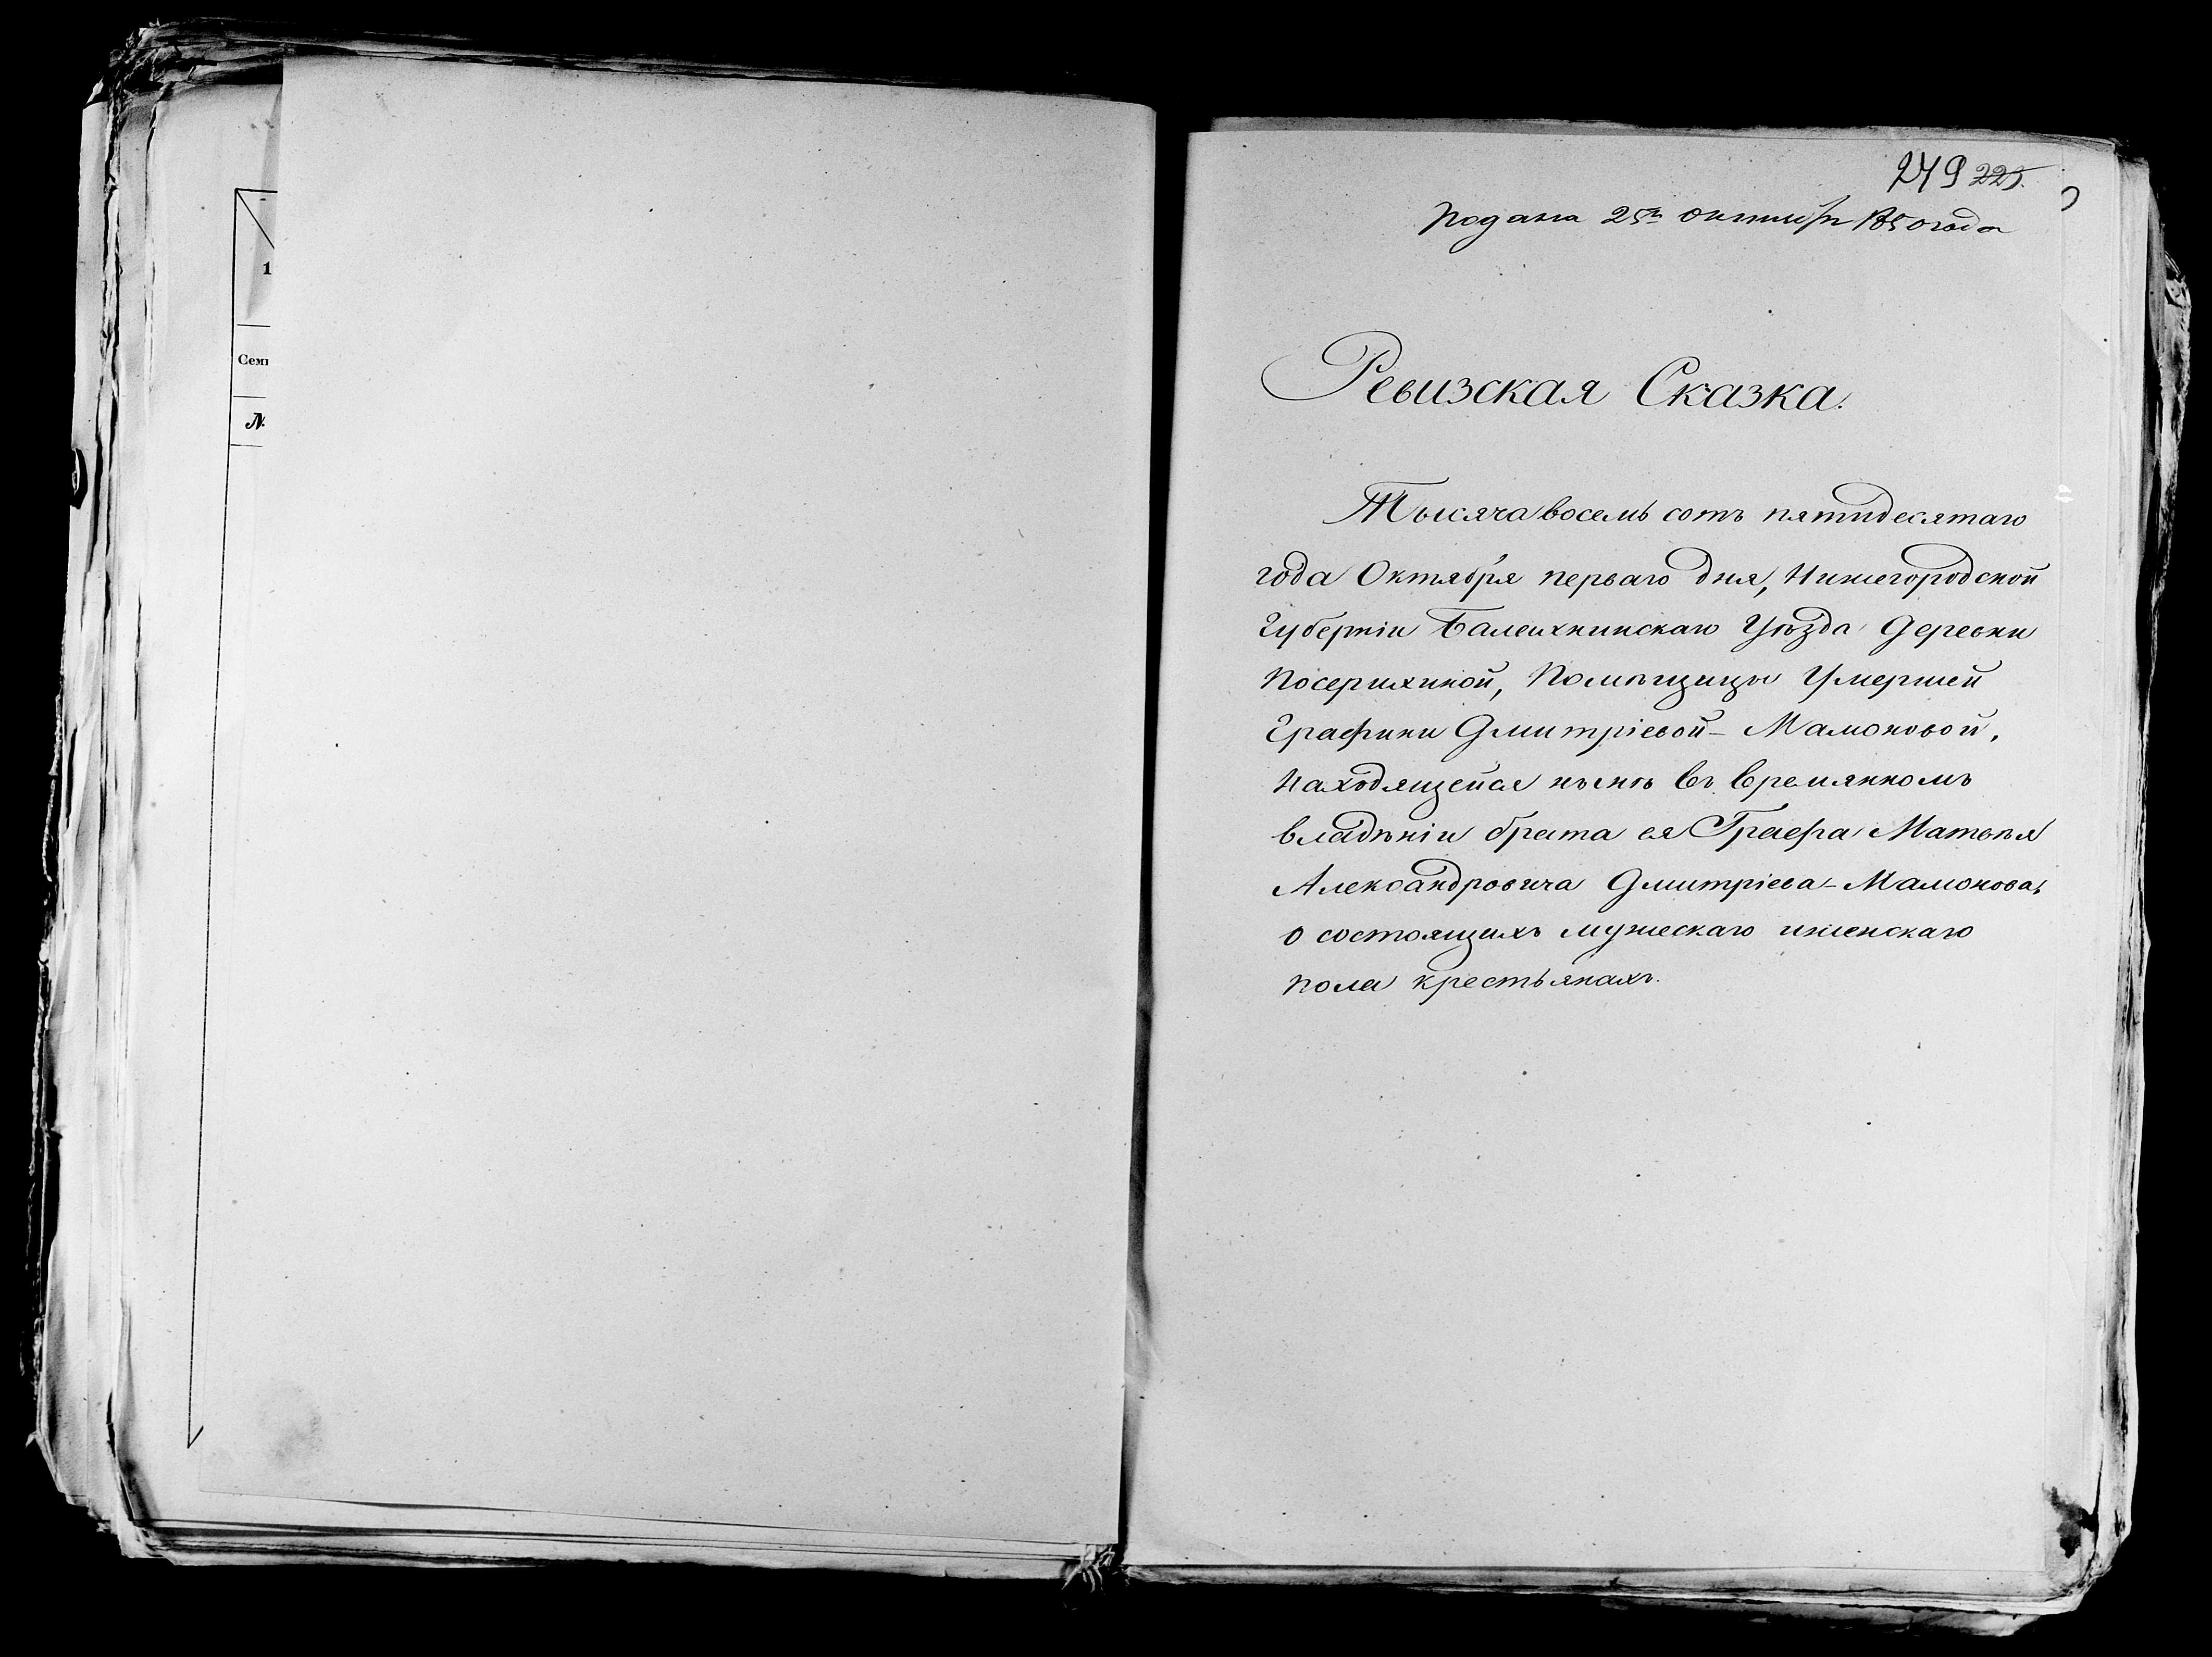 1
Сем
№
249 225.
Подана 25го октября 1850 года
Ревизская Сказка.
Тысяча восемь сотъ пятидесятаго
года Октября перваго дня, Нижегородской
Губерніи Балахнинскаго Уѣзда Деревни
Посерихиной, Помѣщицы Умершей
Графини Дмитріевой-Мамоновой,
находящейся нынѣ въ времянномъ
владѣніи брата ея Графа Матвѣя
Александровича Дмитріева-Мамонова,
о состоящихъ мужескаго и женскаго
пола крестьянахъ.